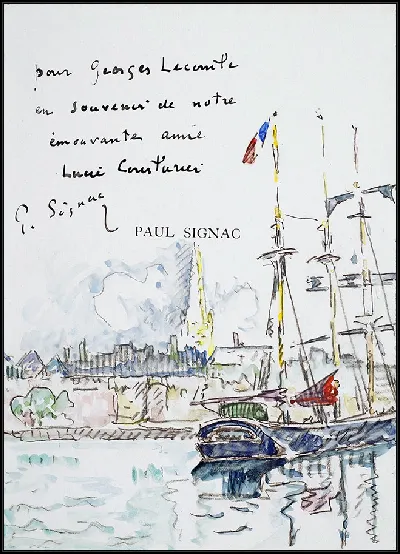 pour Georges Lecomte
en souvenir de notre
émouvante amie
Lucie Cousturier
P. Signac
PAUL SIGNAC